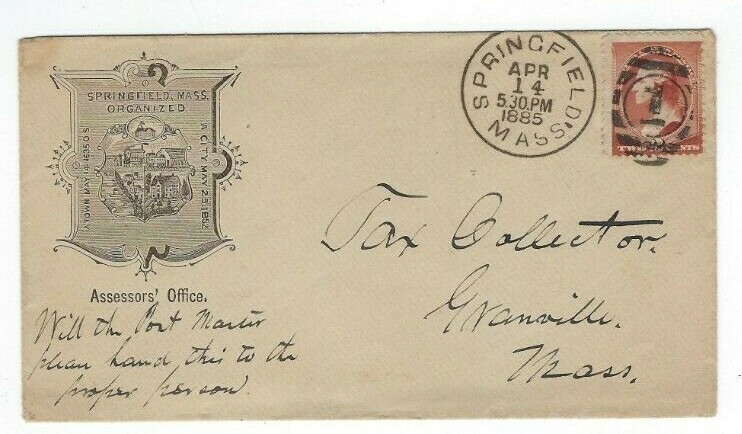 SPRINGFIELD, MASS.
ORGANIZED
A TOWN MAY 14 1636 O.S.
A CITY MAY 25 1852
Assessors' Office.
Will the Post Master
please hand this to the
proper person
SPRINGFIELD
MASS.
APR
14
5.30.PM
1885
1
TWO CENTS
Tax Collector.
Granville.
Mass.